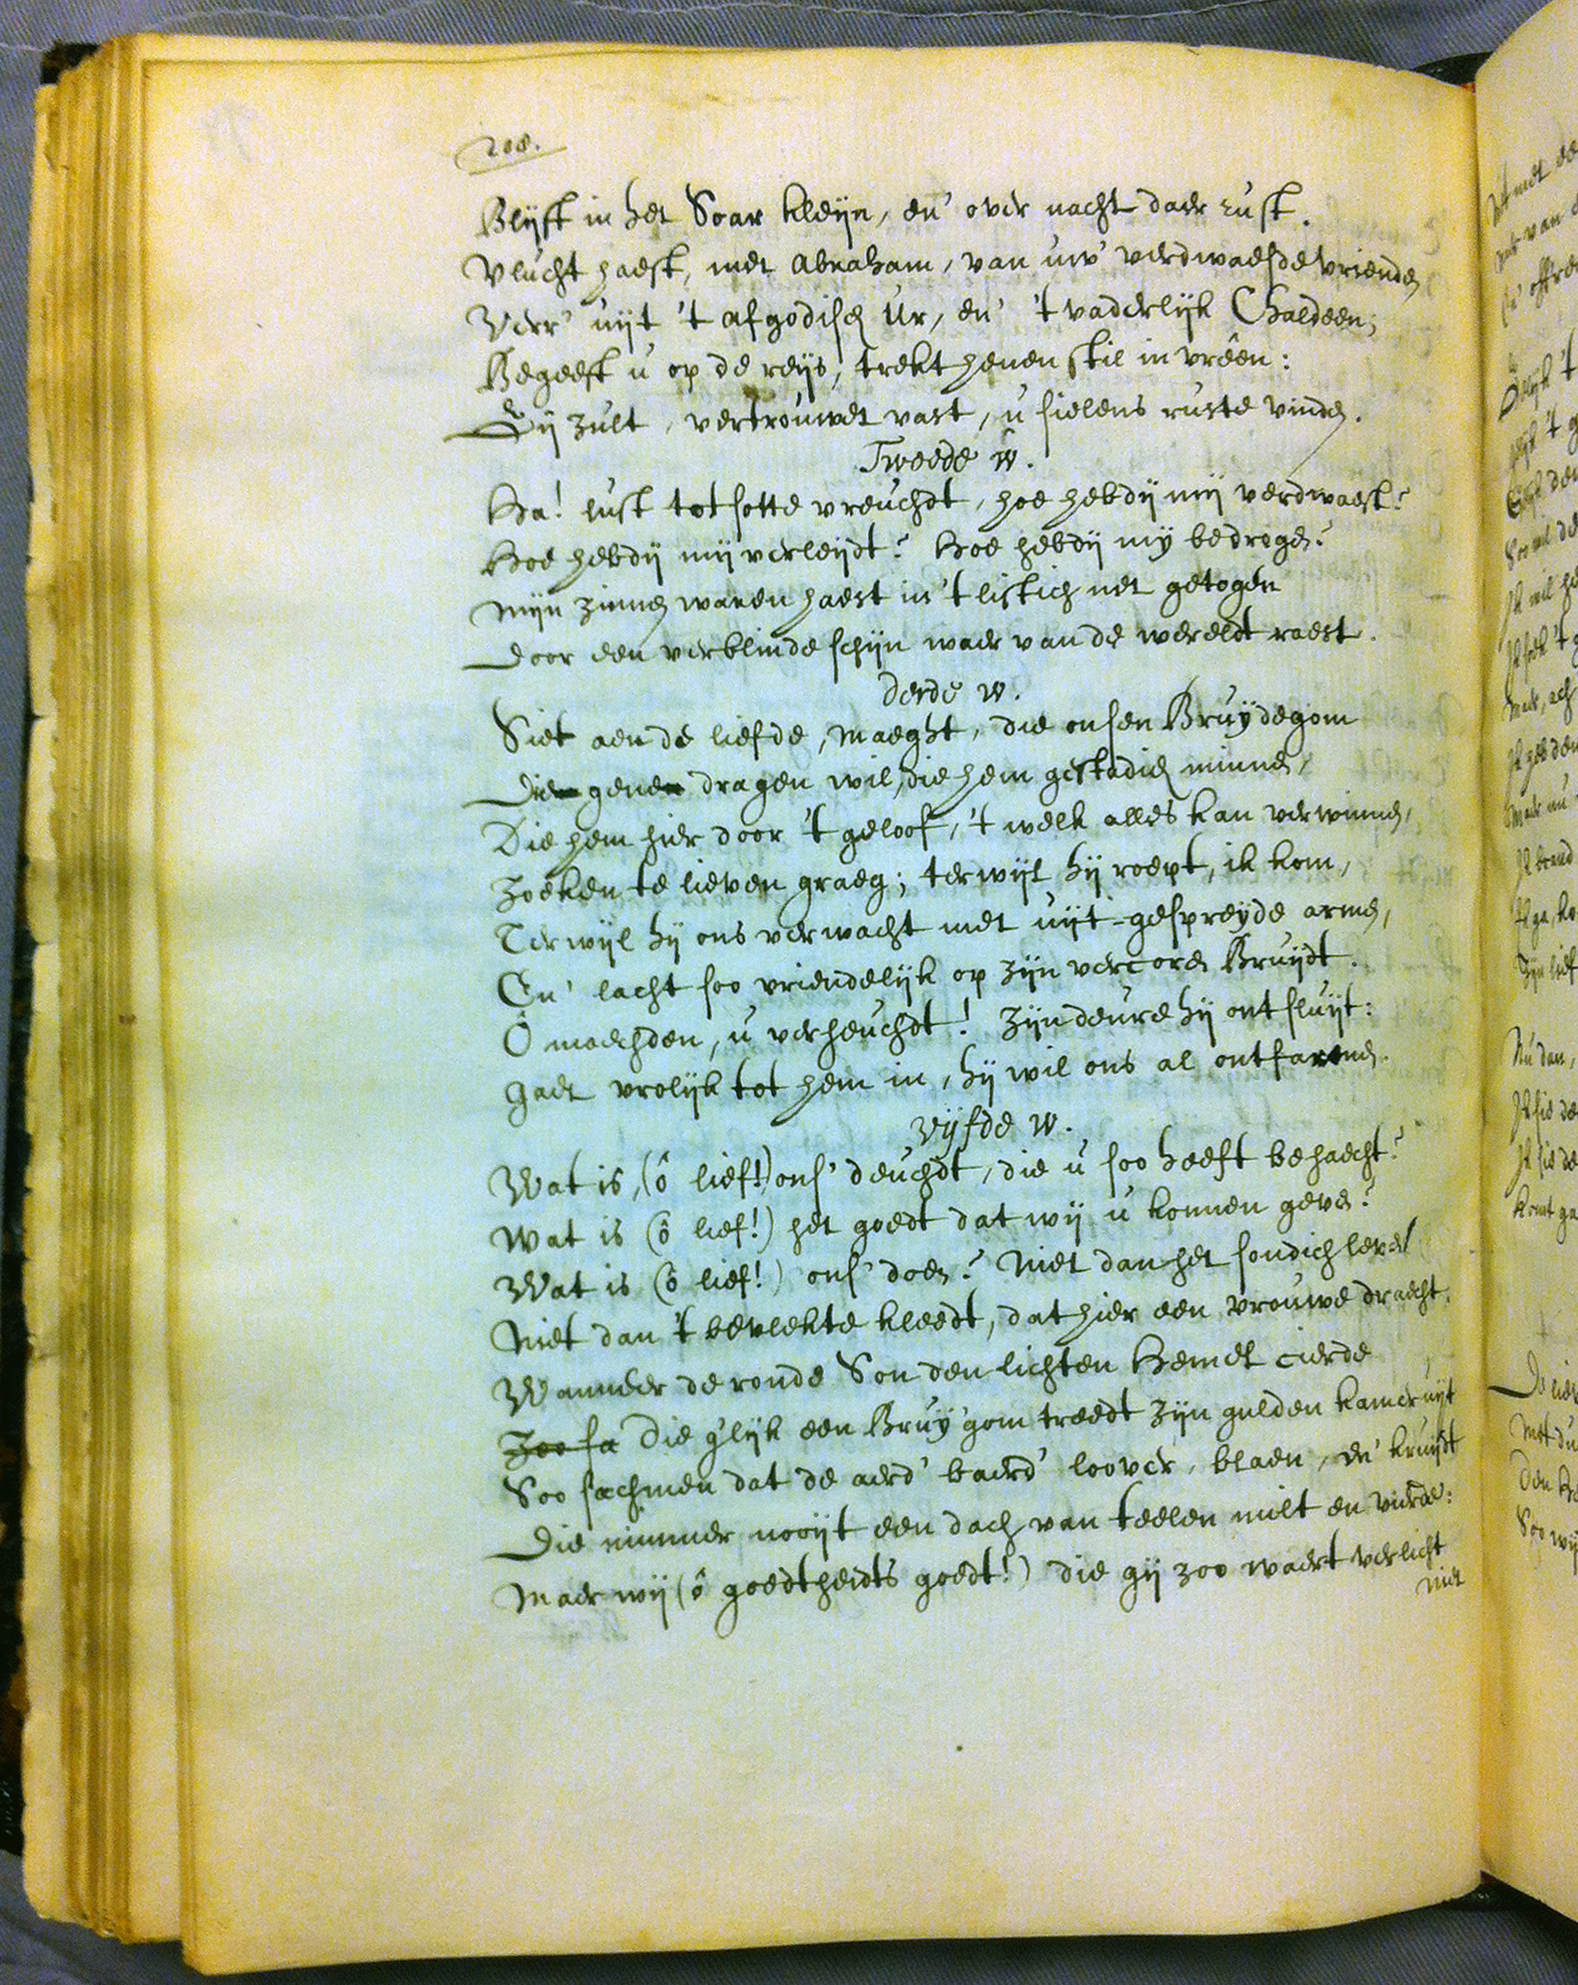 208.
Blijft in het Soar kleijn, en' over nacht daer rust.
Vlucht haest, met Abraham, van uw' verdwaesde vrienden
Verr' uijt 't afgodisch Ur, en' 't vaderlijk Chaldeen;
Begeeft u op de reijs, trekt henen stil in vrêen:
Gij zult, vertrouwet vast, u sielens ruste vinden.
Tweede w.
Ha! lust tot sotte vreuchdt, hoe hebdij mij verdwaest?
Hoe hebdij mij verleijdt? Hoe hebdij mij bedrogen?
Mijn zinnen waren haest in 't listich net getogen
Door een verblinde schijn waer van de wereldt raest.
Derde w.
Siet aen de liefde, Maeght, die onsen Bruijdegom
Die genen dragen wil, die hem gestadich minnen,
Die hem hier door 't geloof, 't welk alles kan verwinnen,
Zoeken te lieven graeg; terwijl hij roept, ik kom,
Terwijl hij ons verwacht met uijt-gespreijde armen,
En' lacht soo vriendelijk op zijn vercoren Bruijdt.
Ô maechden, u verheuchdt! Zijn deure hij ontsluijt:
Gaet vrolijk tot hem in, hij wil ons al ontfarmen.
Vijfde w.
Wat is, (ô lief!) ons' deuchdt, die u soo heeft behaecht?
Wat is (ô lief!) het goedt dat wij u konnen geven?
Wat is (ô lief!) ons' doen? Niet dan het sondich leven
Niet dan 't bevlekte kleedt, dat hier een vrouwe draecht.
Wanneer de ronde Son den lichten Hemel cierde
Zoo sa Die g'lijk een Bruij'gom treedt zijn gulden kamer uijt
Soo sachmen dat de aerd' baerd' loover, blaen, en' kruijdt
Die nimmer nooijt een dach van teelen milt en vierde:
Maer wij (ô goedtheidts goedt!) die gij zoo waert verlicht
niet